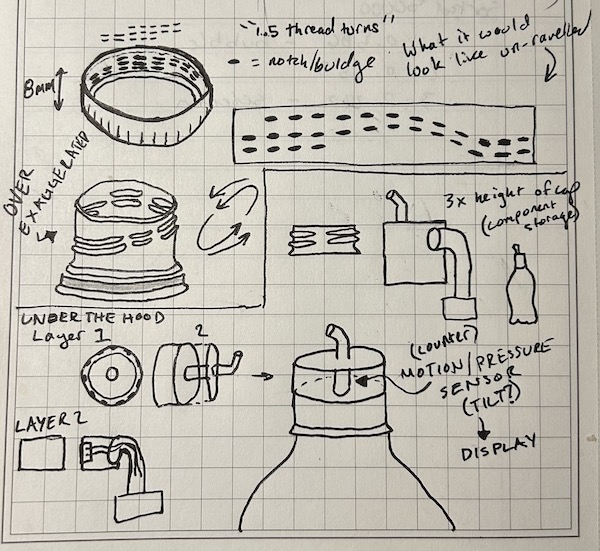 "1.5 thread turns"
= notch/buldge
What it would
look like un-ravelled
8mm
OVER
EXAGGELATED
3x height of cap
(component
storage)
UNDER THE HOOD
Layer 1
2
(counter)
MOTION/PRESSURE
SENSOR
(TILT?)
DISPLAY
LAYER 2